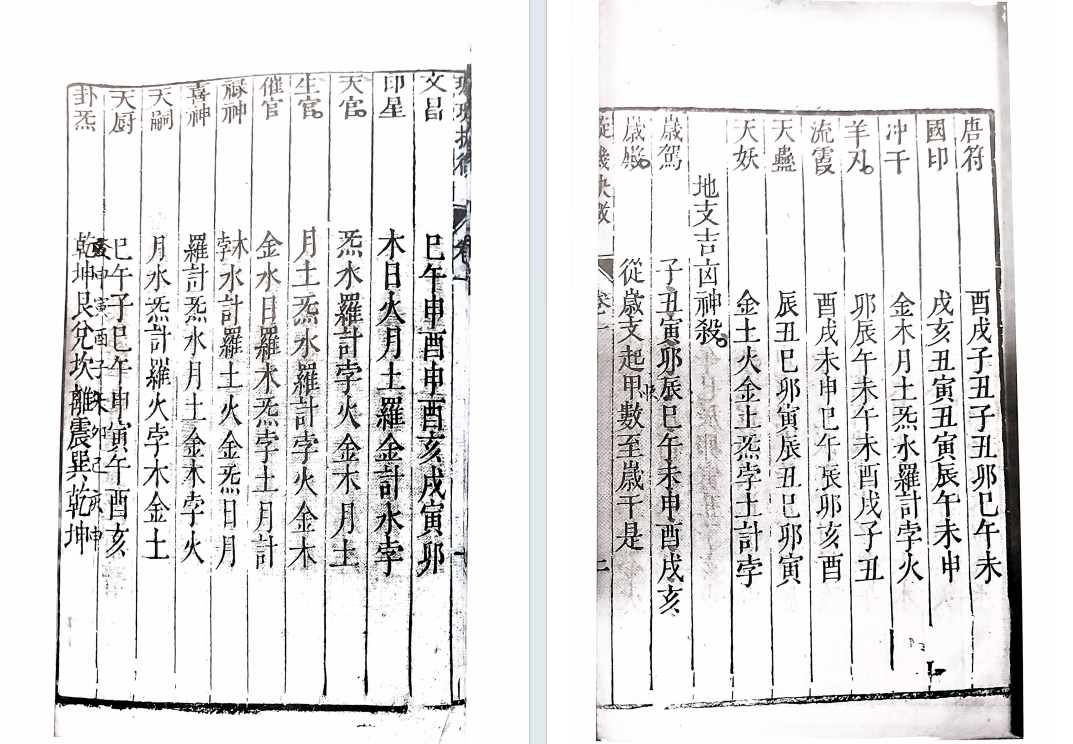 卷一
文昌 巳午申酉申酉亥戌寅卯
印星 木日火月土羅金計水孛
天官 炁水羅計孛火金木月土
生官 月土炁水羅計孛火金木
催官 金水日羅木炁孛土月計
祿神 木孛水計羅土火金炁日月
喜神 羅計炁水月土金木孛火
天嗣 月水炁計羅火孛木金土
天厨 巳午子巳午申寅午酉亥
卦炁 乾坤艮兌坎離震巽乾坤
唐符 酉戌子丑子丑卯巳午未
國印 戌亥丑寅丑寅辰午未申
冲干 金木月土炁水羅計孛火
羊刃 卯辰午未午未酉戌子丑
流霞 酉戌未申巳午辰卯亥酉
天蠱 辰丑巳卯寅辰丑巳卯寅
天妖 金土火金土炁孛土計孛
地支吉凶神殺
歲駕 子丑寅卯辰巳午未申酉戌亥
歲殿 從歲支起甲數至歲干是
卷一 二